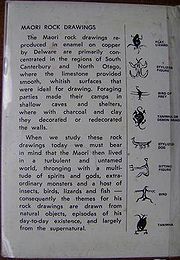 MAORI ROCK DRAWINGS
The Maori rock drawings re-
produced in enamel on copper
by Delware are primarily con-
centrated in the regions of South
Canterbury and North Otago,
where the limestone provided
smooth, whitish surfaces that
were ideal for drawing. Foraging
parties made their camps in
shallow caves and shelters,
where with charcoal and clay
they decorated or redecorated
the walls.
When we study these rock
drawings today we must bear
in mind that the Maori then lived
in a turbulent and untamed
world, thronging with a multi-
tude of spirits and gods, extra-
ordinary monsters and a host of
insects, birds, lizards and fish —
consequently the themes for his
rock drawings are drawn from
natural objects, episodes of his
day-to-day existence, and largely
from the supernatural.
LIZARD
STYLIZED
DOG
BIRD
TANIWHA
STYLIZED
DOG
SITTING
FIGURE
BIRD
TANIWHA